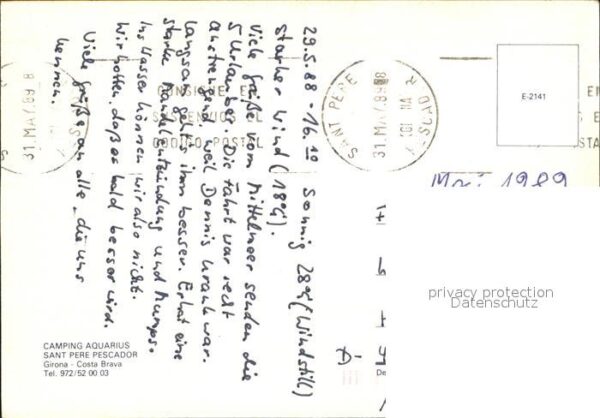 29.5.88 - 16.10 Sonnig 28°C (Windstill)
starker Wind (18°C).
Viele Grüße vom Mittelmeer senden die
5 Urlauber. Die Fahrt war recht
anstrengend, weil Dennis krank war.
Langsam geht's ihm besser. Er hat eine
starke Mandelentzündung und Mumps.
Ins Wasser können wir also nicht.
Wir hoffen, daß es bald besser wird.
Viele Grüße an alle, die uns
kennen.
31 MAY 89
CONSIGNE EL
CODIGO POSTAL
SANT PERE PESCADOR
31.MAY 89
E-2141
Mai 1989
privacy protection
Datenschutz
De
CAMPING AQUARIUS
SANT PERE PESCADOR
Girona - Costa Brava
Tel. 972/52 00 03